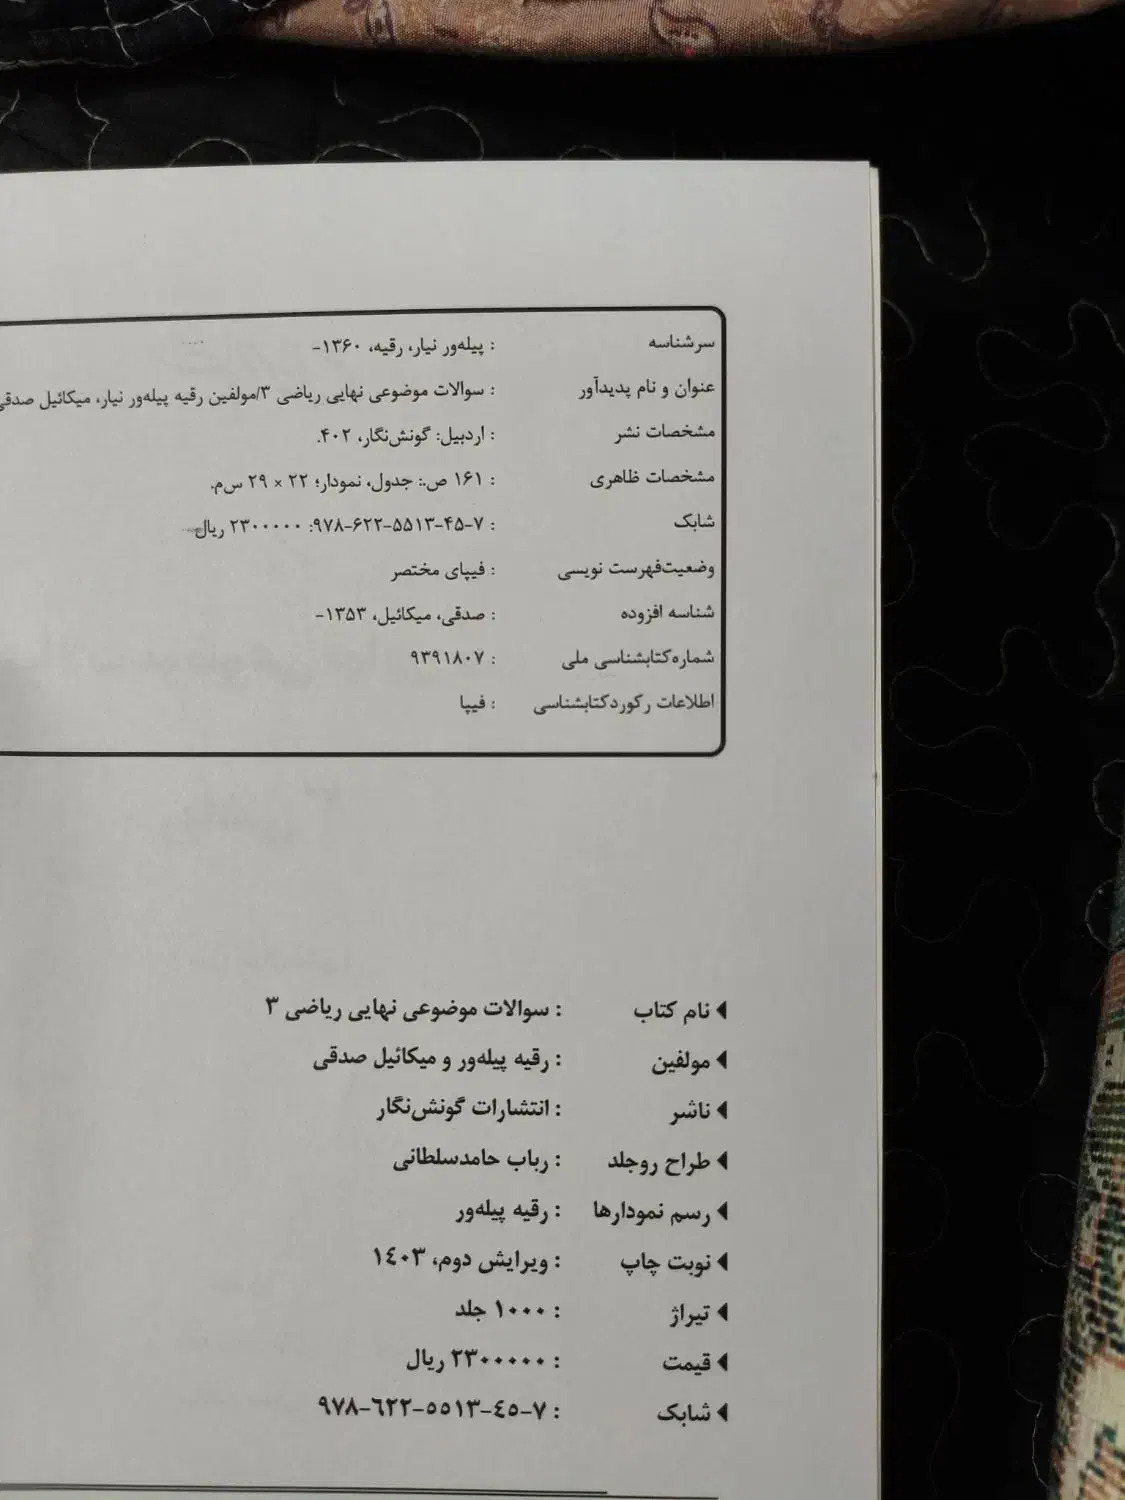 سرشناسه : پیله‌ور نیار، رقیه، ۱۳۶۰-
عنوان و نام پدیدآور : سوالات موضوعی نهایی ریاضی ۳/مولفین رقیه پیله‌ور نیار، میکائیل صدقی
مشخصات نشر : اردبیل: گونش‌نگار، ۴۰۲.
مشخصات ظاهری : ۱۶۱ ص.: جدول، نمودار؛ ۲۲ × ۲۹ س‌م.
شابک : ۹۷۸-۶۲۲-۵۵۱۳-۴۵-۷: ۲۳۰۰۰۰۰ ریال
وضعیت‌فهرست نویسی : فیپای مختصر
شناسه افزوده : صدقی، میکائیل، ۱۳۵۳-
شماره‌کتابشناسی ملی : ۹۳۹۱۸۰۷
اطلاعات رکوردکتابشناسی : فیپا
نام کتاب : سوالات موضوعی نهایی ریاضی ۳
مولفین : رقیه پیله‌ور و میکائیل صدقی
ناشر : انتشارات گونش‌نگار
طراح روجلد : رباب حامدسلطانی
رسم نمودارها : رقیه پیله‌ور
نوبت چاپ : ویرایش دوم، ۱٤۰۳
تیراژ : ۱۰۰۰ جلد
قیمت : ۲۳۰۰۰۰۰ ریال
شابک : ۹۷۸-٦۲۲-٥٥۱۳-٤٥-۷